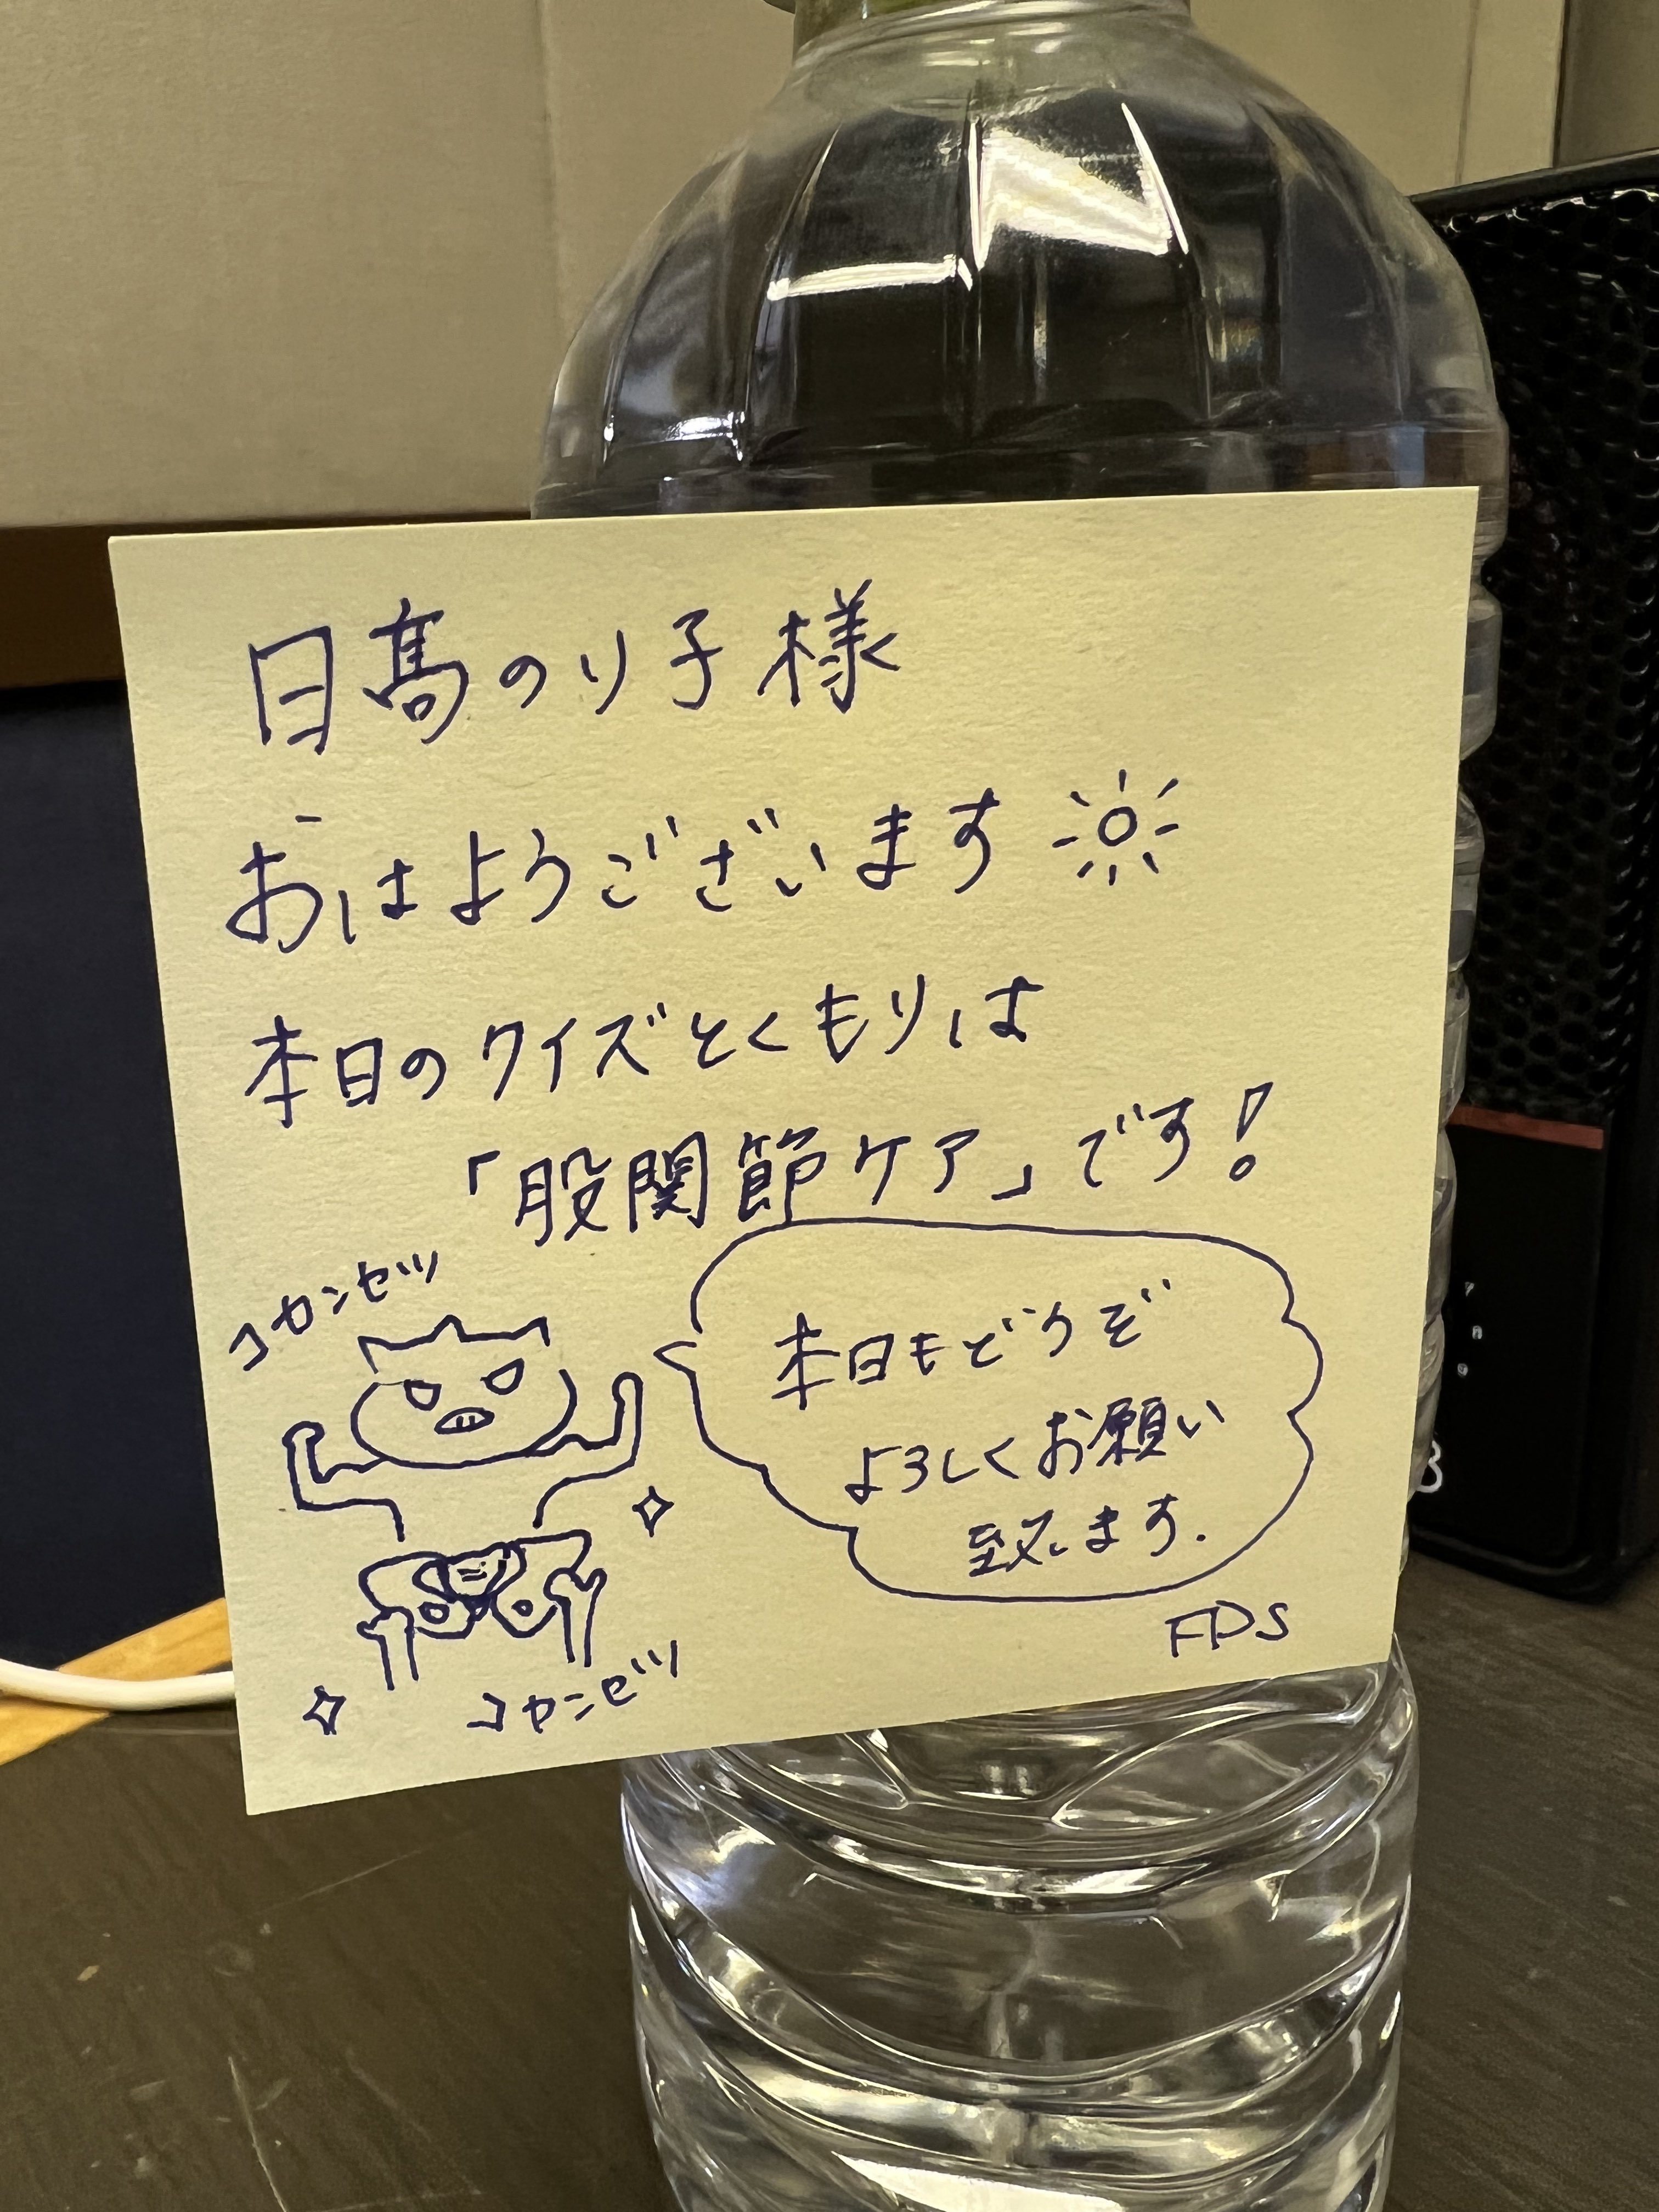 日髙のり子様
おはようございます
本日のクイズとくもりは
「股関節ケア」です!
コカンセツ
本日もどうぞ
よろしくお願い
致します.
FDS
コカンセツ